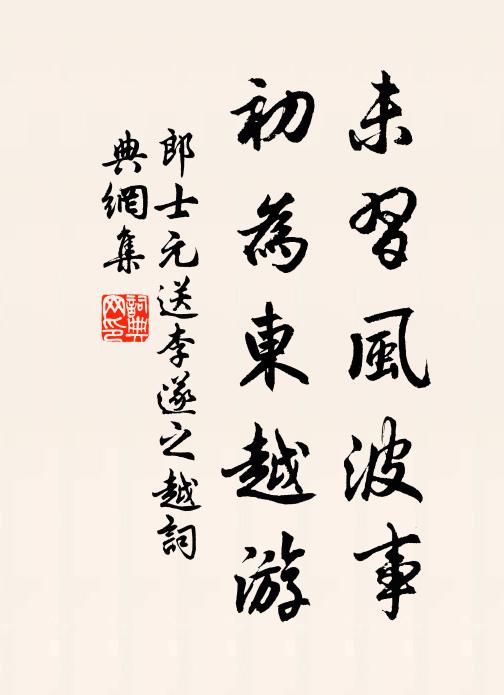 未習風波事
初為東越游
郎士元送李遂之越詞
典網集
詞典
网印